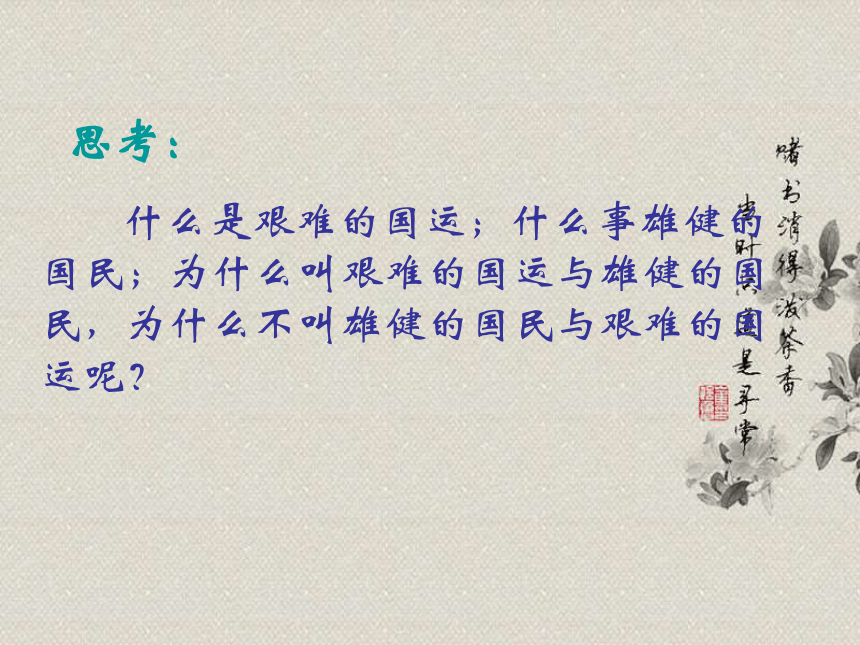 思考：
什么是艰难的国运；什么事雄健的
国民；为什么叫艰难的国运与雄健的国
民，为什么不叫雄健的国民与艰难的国
运呢？
赌书消得泼茶香
当时只道是寻常